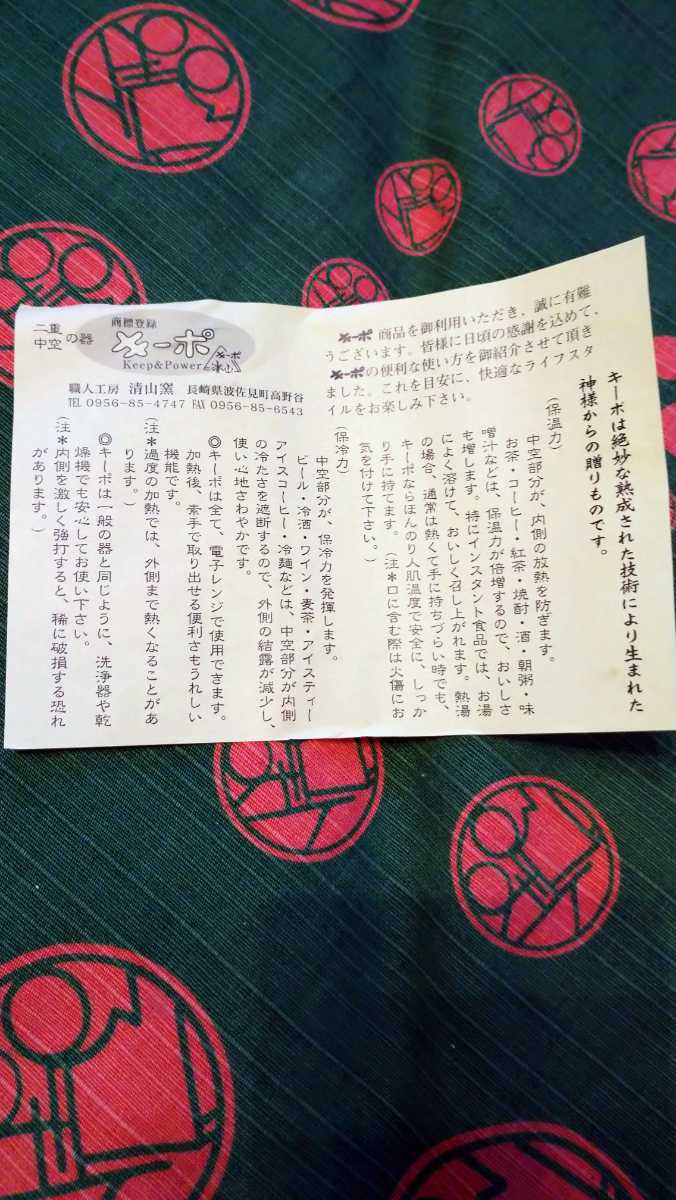 キーポは絶妙な熟成された技術により生まれた
神様からの贈りものです。
キーポ 商品を御利用いただき、誠に有難
うございます。皆様に日頃の感謝を込めて、
キーポの便利な使い方を御紹介させて頂き
ました。これを目安に、快適なライフスタ
イルをお楽しみ下さい。
(保温力)
中空部分が、内側の放熱を防ぎます。
お茶・コーヒー・紅茶・焼酎・酒・朝粥・味
噌汁などは、保温力が倍増するので、おいしさ
も増します。特にインスタント食品では、お湯
によく溶けて、おいしく召し上がれます。熱湯
の場合、通常は熱くて手に持ちづらい時でも、
キーポならほんのり人肌温度で安全に、しっか
り手に持てます。(注*口に含む際は火傷にお
気を付けて下さい。)
(保冷力)
中空部分が、保冷力を発揮します。
ビール・冷酒・ワイン・麦茶・アイスティー
アイスコーヒー・冷麺などは、中空部分が内側
の冷たさを遮断するので、外側の結露が減少し、
使い心地さわやかです。
◎キーポは全て、電子レンジで使用できます。
加熱後、素手で取り出せる便利さもうれしい
機能です。
(注*過度の加熱では、外側まで熱くなることがあ
ります。)
◎キーポは一般の器と同じように、洗浄器や乾
燥機でも安心してお使い下さい。
(注*内側を激しく強打すると、稀に破損する恐れ
があります。)
二重
中空
の器
商標登録
キーポ
Keep&Power
キーポ
職人工房 清山窯 長崎県波佐見町高野谷
TEL 0956-85-4747 FAX 0956-85-6543